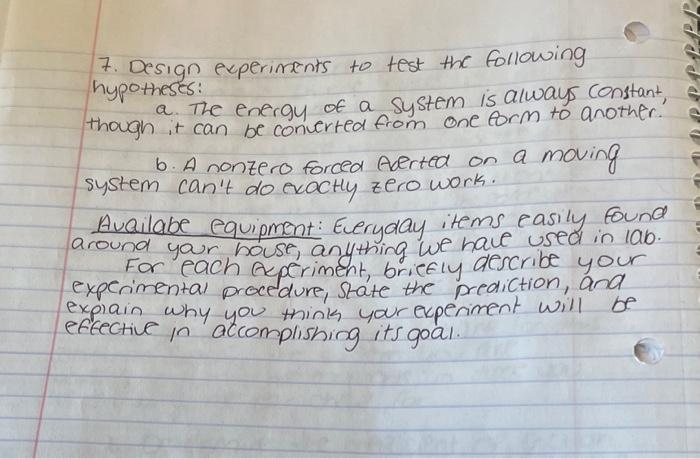 7. Design experiments to test the following
hypotheses:
a. The energy of a system is always constant,
though it can be converted from one form to another.
b. A nonzero forced exerted on a moving
system can't do exactly zero work.
Availabe equipment: Everyday items easily found
around your house, anything we have used in lab.
For each experiment, briefly describe your
experimental procedure, state the prediction, and
explain why you think your experiment will be
effective in accomplishing its goal.